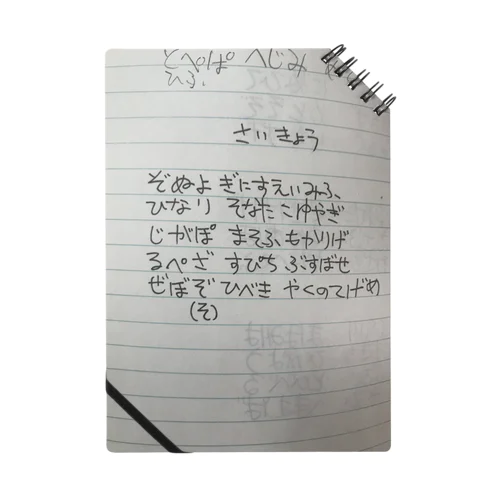 とぺぱ へじみ
ひふ、
さいきょう
ぞぬよ ぎにすえいみふ、
ひなり そなた こゆやぎ
じがぽ まそふ、もかりげ
るぺざ すぴち ぶすばせ
ぜぼぞ ひべき やくのてげめ
(そ)